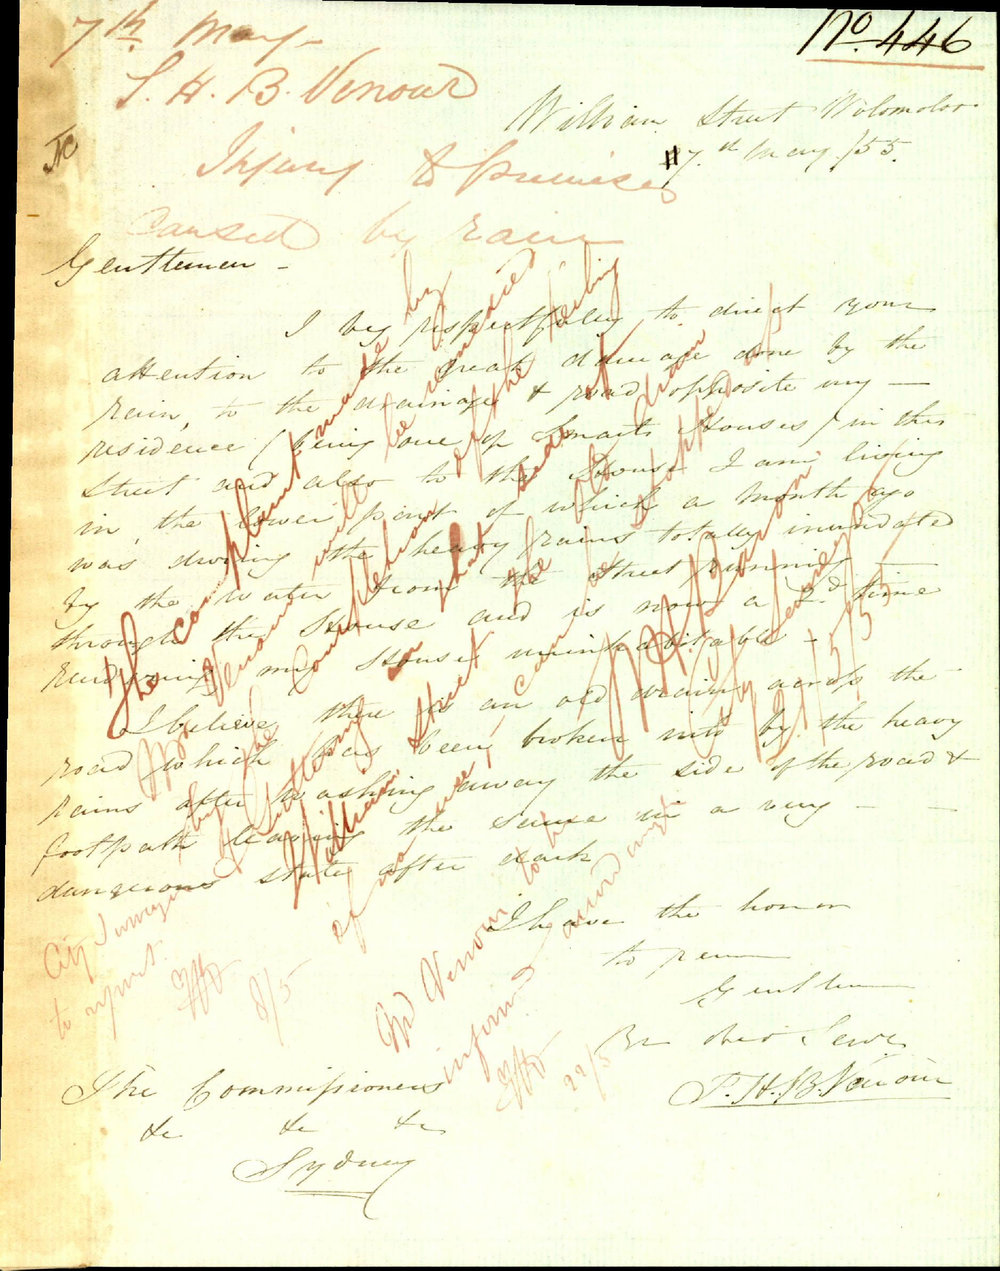 No. 446
7th May
S. H. B. Venour
Injury to premises
caused by rain
William Street Wolomoloo
7th May /55.
Gentlemen -
I beg respectfully to direct your
attention to the great damage done by the
rain, to the drainage & road opposite my -
residence (being one of Smarts Houses) in this
Street and also to the House I am living
in, the lower part of which a Month ago
was during the heavy rains totally inundated
by the water from the street running -
through the House and is now a 2nd time
rendering my House uninhabitable -
I believe there is an old drain across the
road which has been broken into by the heavy
rains after washing away the side of the road &
footpath leaving the same in a very -
dangerous state after dark
I have the honor
to remain
Gentlemen
Yr obed Servt
S. H. B. Venour
The Commissioners
&c &c &c
Sydney
City Surveyor
to report.
8/5
The complaint made by
Mr Venour will be remedied
by the completion of the kerbing
& Guttering on that side of
William Street the old drain
if no use, can be stopped up
City Surveyor
21/5/55
Mr Venour to be
informed accordingly
22/5